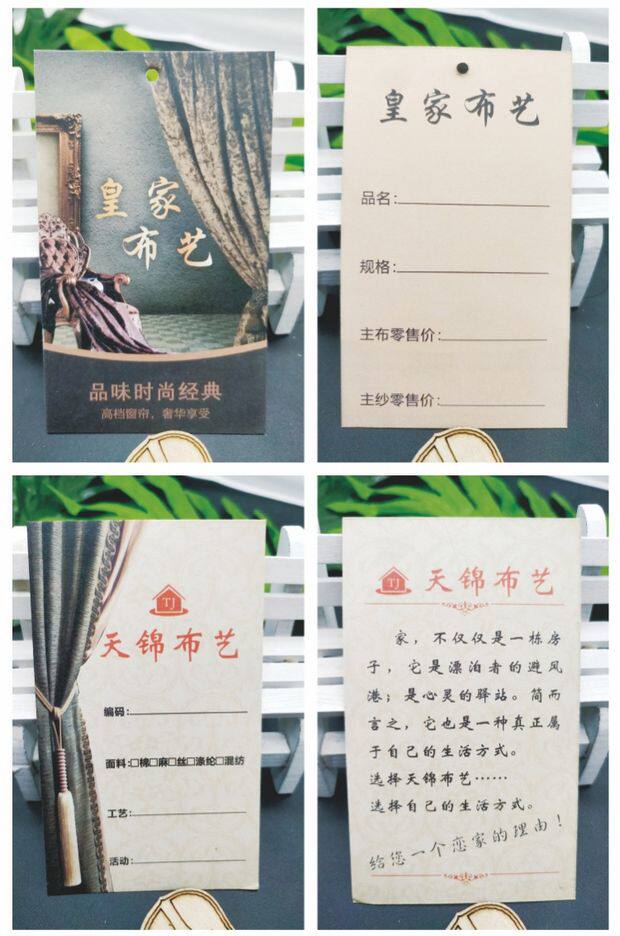 皇家
布艺
品味时尚经典
高档窗帘，奢华享受
皇家布艺
品名：
规格：
主布零售价：
主纱零售价：
TJ
天锦布艺
编码：
面料：□棉□麻□丝□涤纶□混纺
工艺：
活动：
TJ
天锦布艺
家，不仅仅是一栋房
子，它是漂泊者的避风
港；是心灵的驿站。简而
言之，它也是一种真正属
于自己的生活方式。
选择天锦布艺……
选择自己的生活方式。
给您一个恋家的理由！